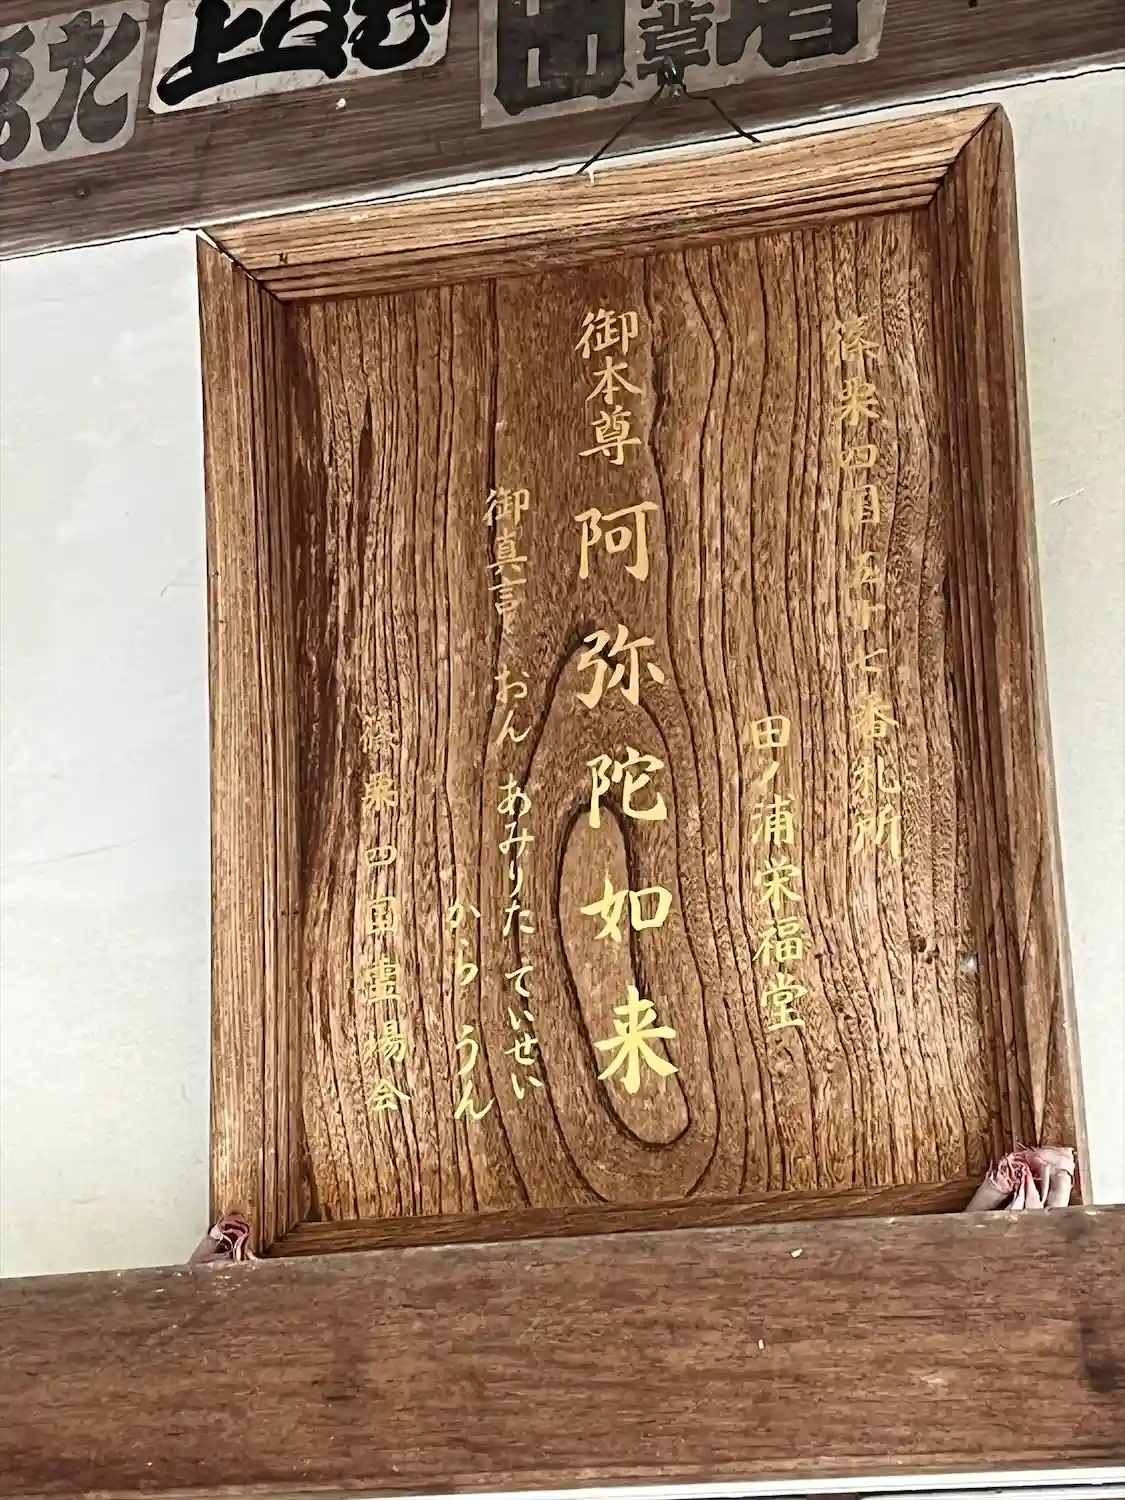 篠栗四国五十七番札所
田ノ浦栄福堂
御本尊 阿弥陀如来
御真言 おん あみりた ていせい
から うん
篠栗四国霊場会